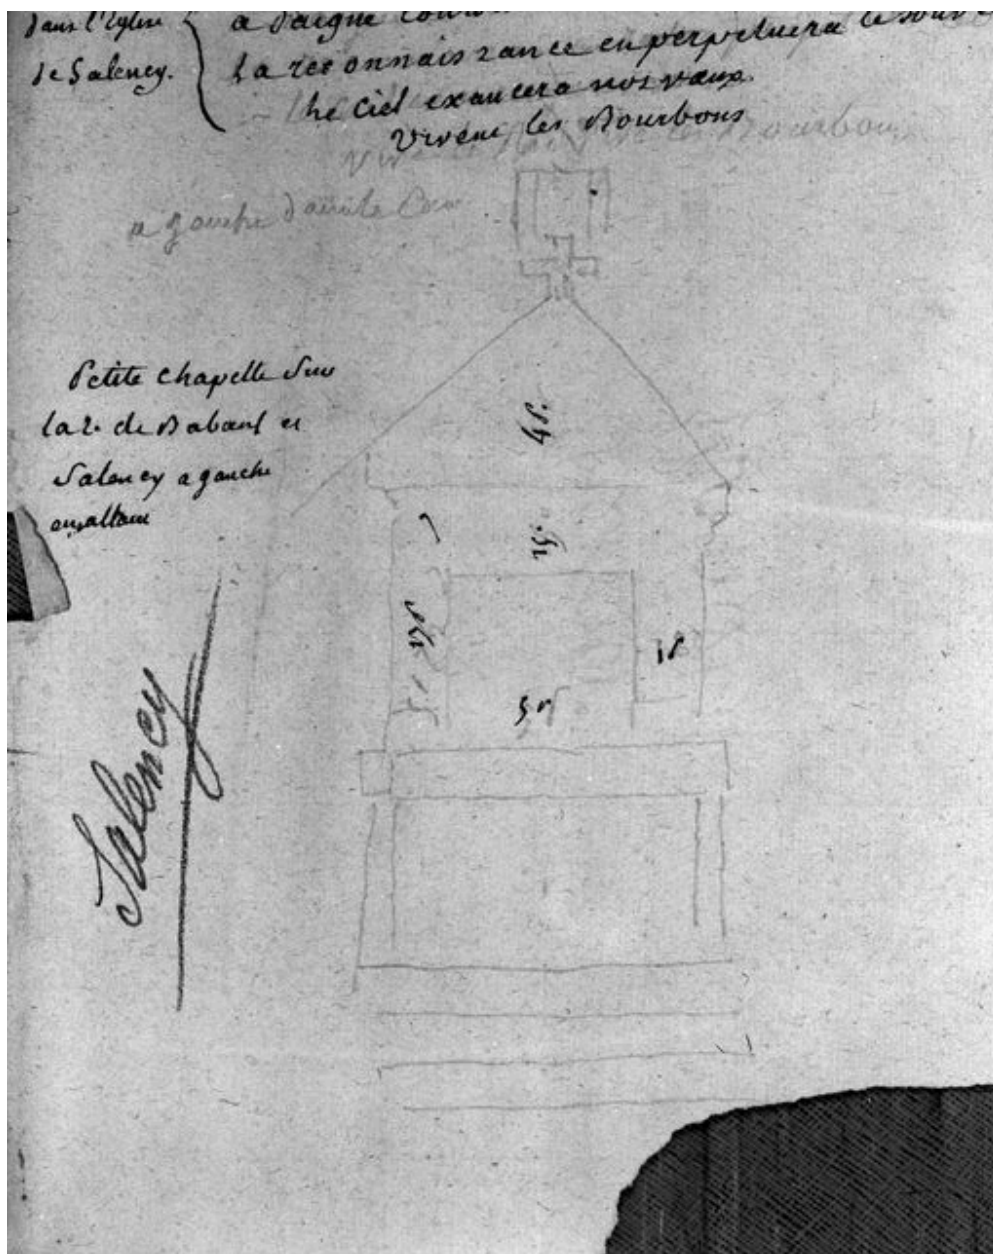 dans l'Eglise
de Salency.
a daigné
la reconnaissance en perpetuera le
Le Ciel exaucera nos vœux
Vivent les Bourbons
Bourbons
a gauche
Petite chapelle sur
la r. de Babœuf et
Salency a gauche
en allant
4 p.
5 p
1 p
Salency